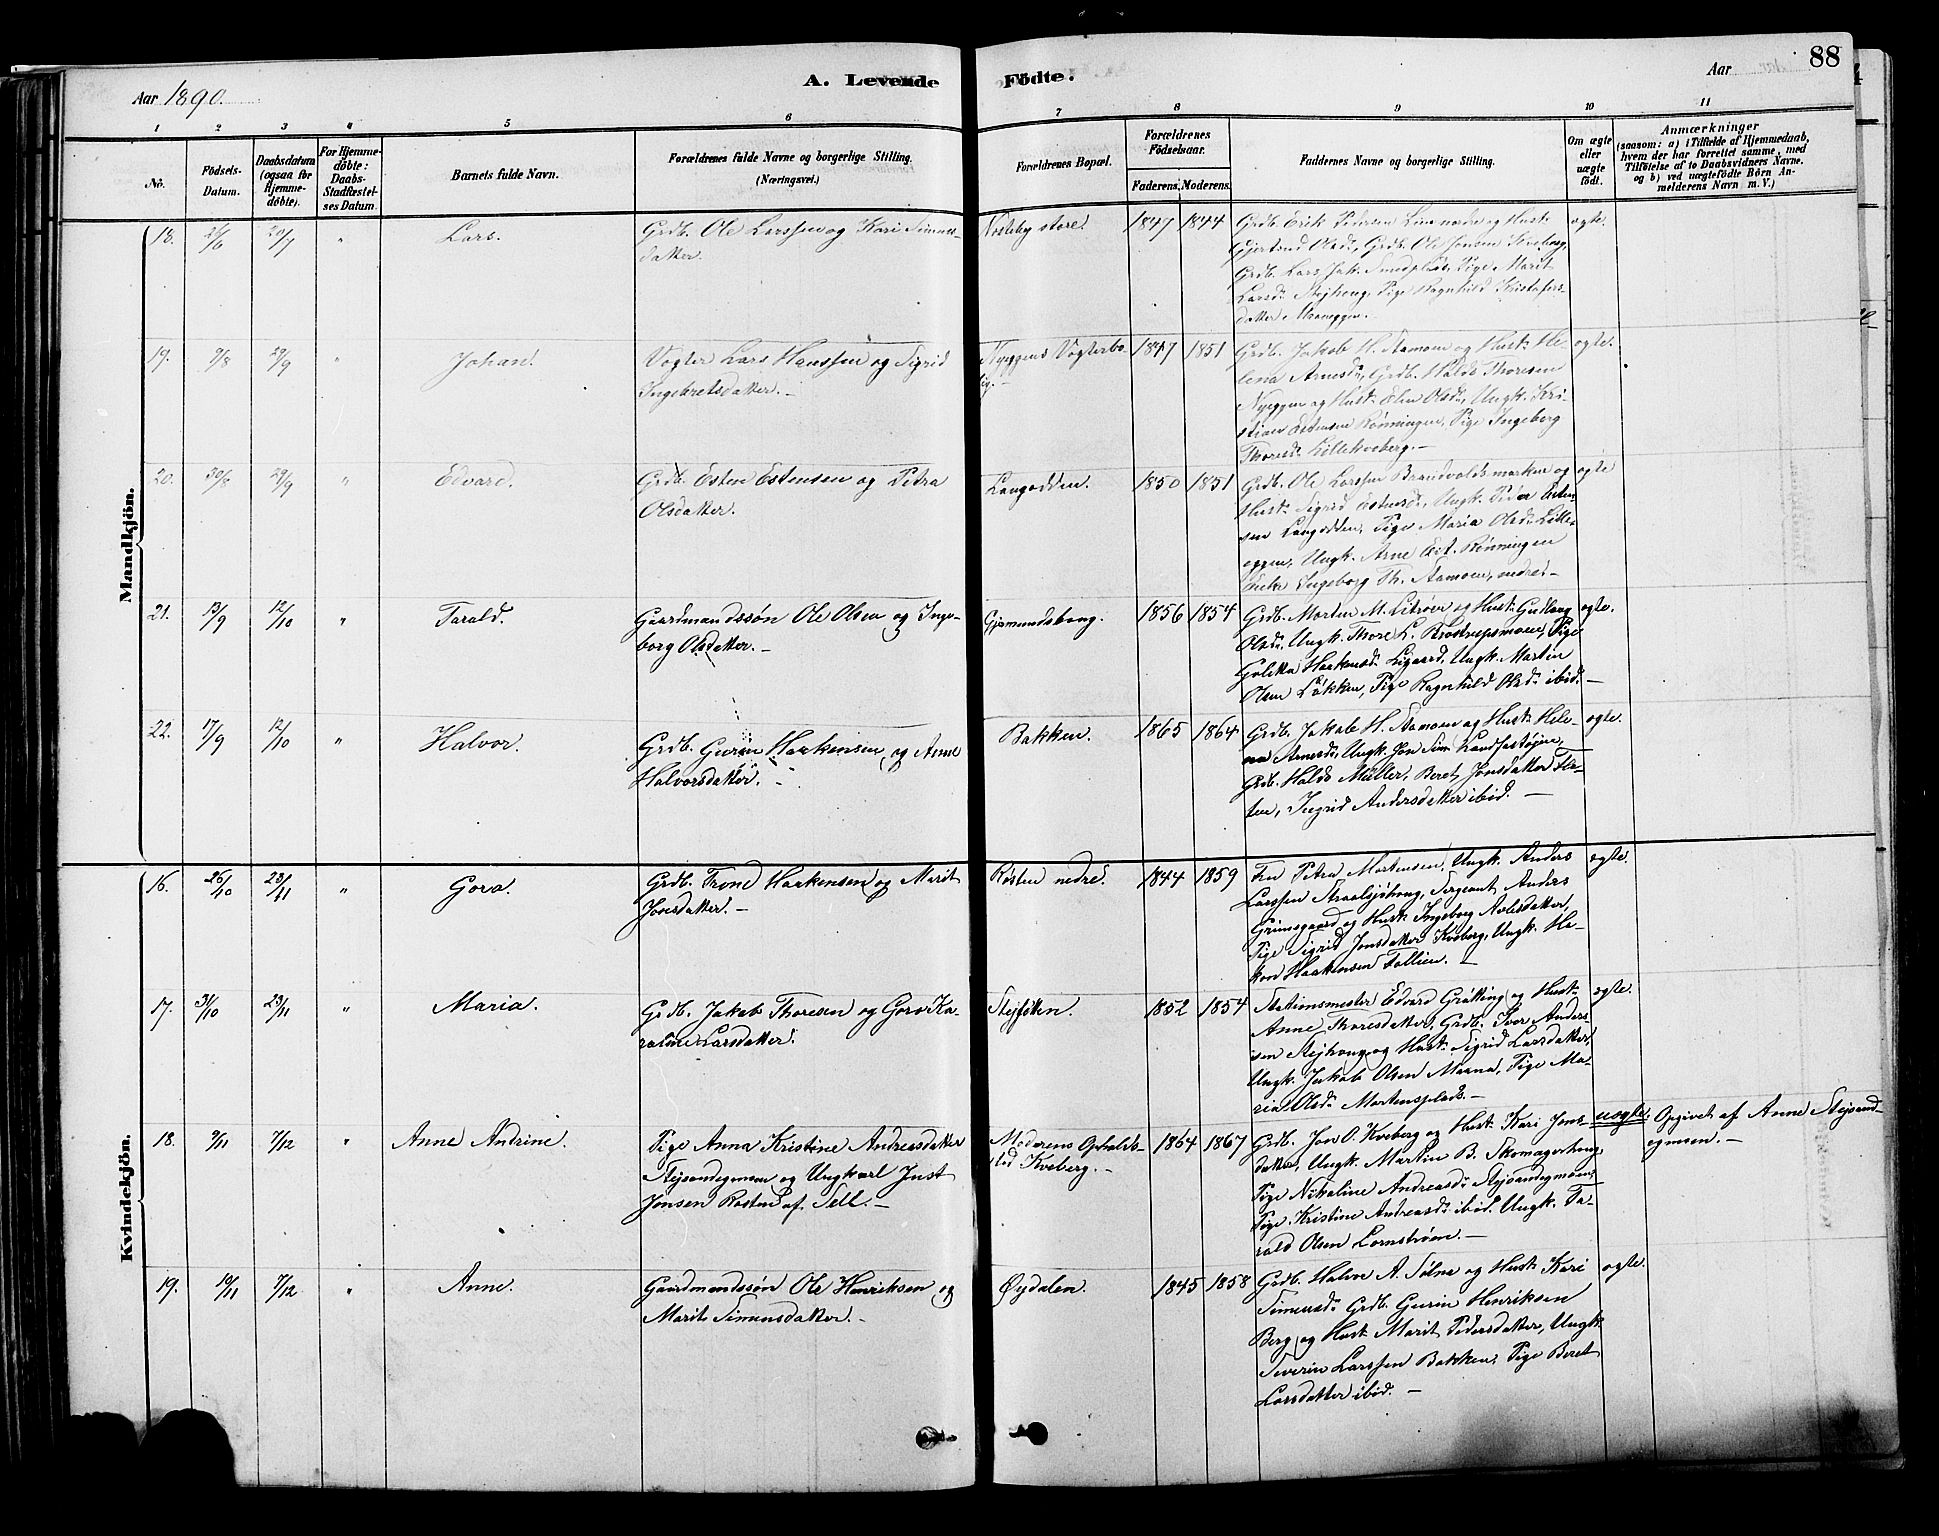 88
A. Levende Födte.
Aar 1890.
Aar
1 2 3 4 5 6 7 8 9 10 11
No.
Födsels-
Datum.
Daabsdatum
(ogsaa for
Hjemme-
döbte).
For Hjemme-
döbte:
Daabs-
Stadfæstel-
ses Datum.
Barnets fulde Navn.
Forældrenes fulde Navne og borgerlige Stilling.
(Næringsvei.)
Forældrenes Bopæl.
Forældrenes
Födselsaar.
Faderens. Moderens.
Faddernes Navne og borgerlige Stilling.
Om ægte
eller
uægte
födt.
Anmærkninger
(saasom: a) i Tilfælde af Hjemmedaab,
hvem der har forrettet samme, med
Tilföielse af to Daabsvidners Navne.
og b) ved uægtefödte Börn An-
melderens Navn m. V.)
Mandkjön.
18. 20/7 " Lars.
Grdb. Ole Larssen og Kari Simens-
datter.
store. 1847 1844
Grdb. Erik Pedersen og Hust.
Olsd., Grdb. Ole Kveberg,
Grdb. Lars Jak. Smedplads, Pige Marit
Larsd. Stejhaug, Pige Ragnhild Kristofers-
datter
ægte.
19. 9/8 29/9 " Johan.
Vogter Lars Hanssen og Sigrid
Ingebretsdatter. —
Nyeggens Vogterbo-
lig. —
1847 1851
Grdb. Jakob H. Aamoen og Hust. He-
lena Arnesd., Grdb. Haldo Thoresen
Nyeggen og Hust. Elen Olsd., Ungk. Kri-
stian Estensen Rønningen, Pige Ingeborg
Thoresd. Lillekveberg. —
ægte.
20. 30/8 29/9 " Edvard.
Grdb. Esten Estensen og Petra
Olsdatter.
Langodden. 1850 1851
Grdb. Ole Larssen Brandvoldsmarken og
Hust. Sigrid Estensd., Ungk. Peder Esten-
sen Langodden, Pige Maria Olsd. Lille-
eggen, Ungk. Arne Est. Rønningen
Ingeborg Th. Aamoen, nedre. —
ægte
21. 13/9 12/10 " Tarald.
Gaardmandssøn Ole Olsen og Inge-
borg Olsdatter. —
Gjermundshaug. 1856 1854
Grdb. Morten M. Litrøen og Hust. Gudlaug
Olsd., Ungk. Thore L. Pige
Golikka Haakensd. Ligaard, Ungk. Martin
Olsen Løkken, Pige Ragnhild Olsd. ibid. —
ægte.
22. 17/9 12/10 " Halvor.
Grdb. Gurin Haakensen og Anne
Halvorsdatter.
Bakken. 1865 1864
Grdb. Jakob H. Aamoen og Hust. Hele-
na Arnesd., Ungk. Jon Sim. Landfastøjen,
Grdb. Haldo Müller, Beret Jonsdatter Fla-
ten, Ingrid Andersdatter ibid. —
ægte.
Kvindekjön.
16. 26/10 23/11 " Goro.
Grdb. Trond Haakensen og Marit
Jonsdatter. —
Røsten nedre. 1844 1859
Fru Petra Mortensen, Ungk. Anders
Larssen Straalsjøhaug, Sergeant Anders
Grimsgaard og Hust. Ingeborg
Pige Sigrid Jonsdatter Kveberg, Ungk. Ha-
kon Haakensen Tollien. —
ægte.
17. 31/10 23/11 " Maria.
Grdb. Jakob Thoresen og Goro Ka-
roline Larsdatter.
1852 1854
Stationsmester Edvard Grøtting og Hust.
Anne Thoresdatter, Grdb. Ivar Anders-
sen Stejhaug og Hust. Sigrid Larsdatter,
Ungk. Jakob Olsen Moana, Pige Ma-
ria Olsd. Mortensplads. —
ægte.
18. 9/11 7/12 " Anne Andrine.
Pige Anna Kristine Andreasdatter
Stejsandegmoen og Ungkarl Just
Jonsen Røsten af Tell. —
Moderens Opholds-
sted Kveberg. —
1864 1867
Grdb. Jon O. Kveberg og Hust. Kari Jons-
datter, Ungk. Martin B. Skomagerhaug,
Pige Nikoline Andreasd. Stejsandegmoen,
Pige Kristine Andreasd. ibid. Ungk. Ta-
rald Olsen Lornstrøen. —
uægte.
Opgivet af Anne Stejsand-
egmoen. —
19. 19/11 7/12 " Anne.
Gaardmandssøn Ole Henriksen og
Marit Simensdatter. —
Øydalen. 1845 1858
Grdb. Halvor A. Sølna og Hust. Kari
Simensd. Grdb. Gurin Henriksen
Berg og Hust. Marit Pedersdatter, Ungk.
Severin Larssen Bakken, Pige Beret
Larsdatter ibid. —
ægte.